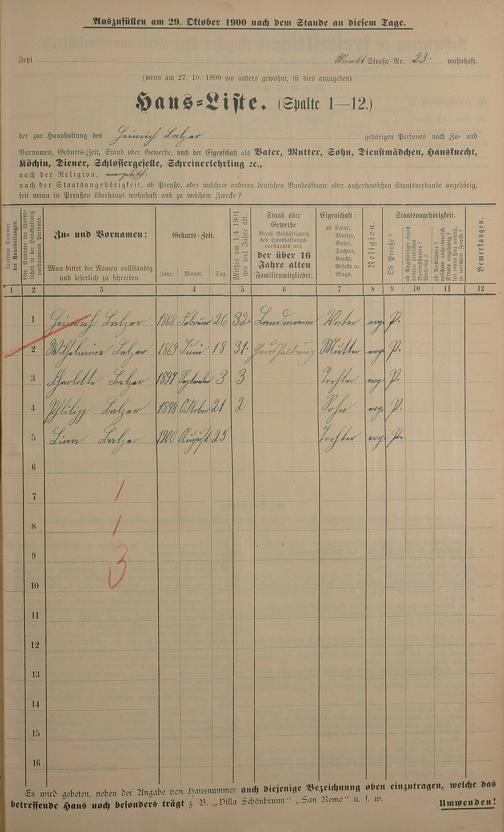 Auszufüllen am 29. Oktober 1900 nach dem Stande an diesem Tage.
Jetzt Straße Nr. 23. wohnhaft.
(wenn am 27. 10. 1899 wo anders gewohnt, ist dies anzugeben)
Haus-Liste. (Spalte 1—12.)
der zur Haushaltung des Heinrich Balzer gehörigen Personen nach Zu- und
Vornamen, Geburts-Zeit, Stand oder Gewerbe, nach der Eigenschaft als Vater, Mutter, Sohn, Dienstmädchen, Hausknecht,
Köchin, Diener, Schlossergeselle, Schreinerlehrling ꝛc.,
nach der Religion,
nach der Staatsangehörigkeit, ob Preuße, oder welchem anderen deutschen Bundesstaate oder außerdeutschen Staatsverbande angehörig,
seit wann in Preußen überhaupt wohnhaft und zu welchem Zwecke?
Zu- und Vornamen:
Man bittet die Namen vollständig
und leserlich zu schreiben.
Geburts-Zeit.
Jahr. Monat. Tag.
Mithin am 1/4 1901
wie viel Jahre alt.
Stand oder
Gewerbe
der über 16
Jahre alten
Familienmitglieder.
Eigenschaft:
ob Vater,
Mutter,
Sohn,
Tochter,
Knecht,
Geselle ꝛc.
Magd.
Religion.
Ob Preuße?
Staatsangehörigkeit.
Bemerkungen.
1 2 3 4 5 6 7 8 9 10 11 12
1 Heinrich Balzer 1868 Februar 26 32. Landmann Vater evg. P.
2 Wilhelmine Balzer 1869 Juni 18 31. Haushaltung Mutter evg. P.
3 Charlotte Balzer 1897 September 3 3 Tochter evg. P.
4 Philipp Balzer 1898 Oktober 21 2 Sohn evg. P.
5 Balzer 1900 August 25 Tochter evg. P.
6
7 1
8 1
9 3
10
11
12
13
14
15
16
Es wird gebeten, neben der Angabe von Hausnummer auch diejenige Bezeichnung oben einzutragen, welche das
betreffende Haus noch besonders trägt z. B. „Villa Schönbrunn" „San Remo" u. s. w. Umwenden!